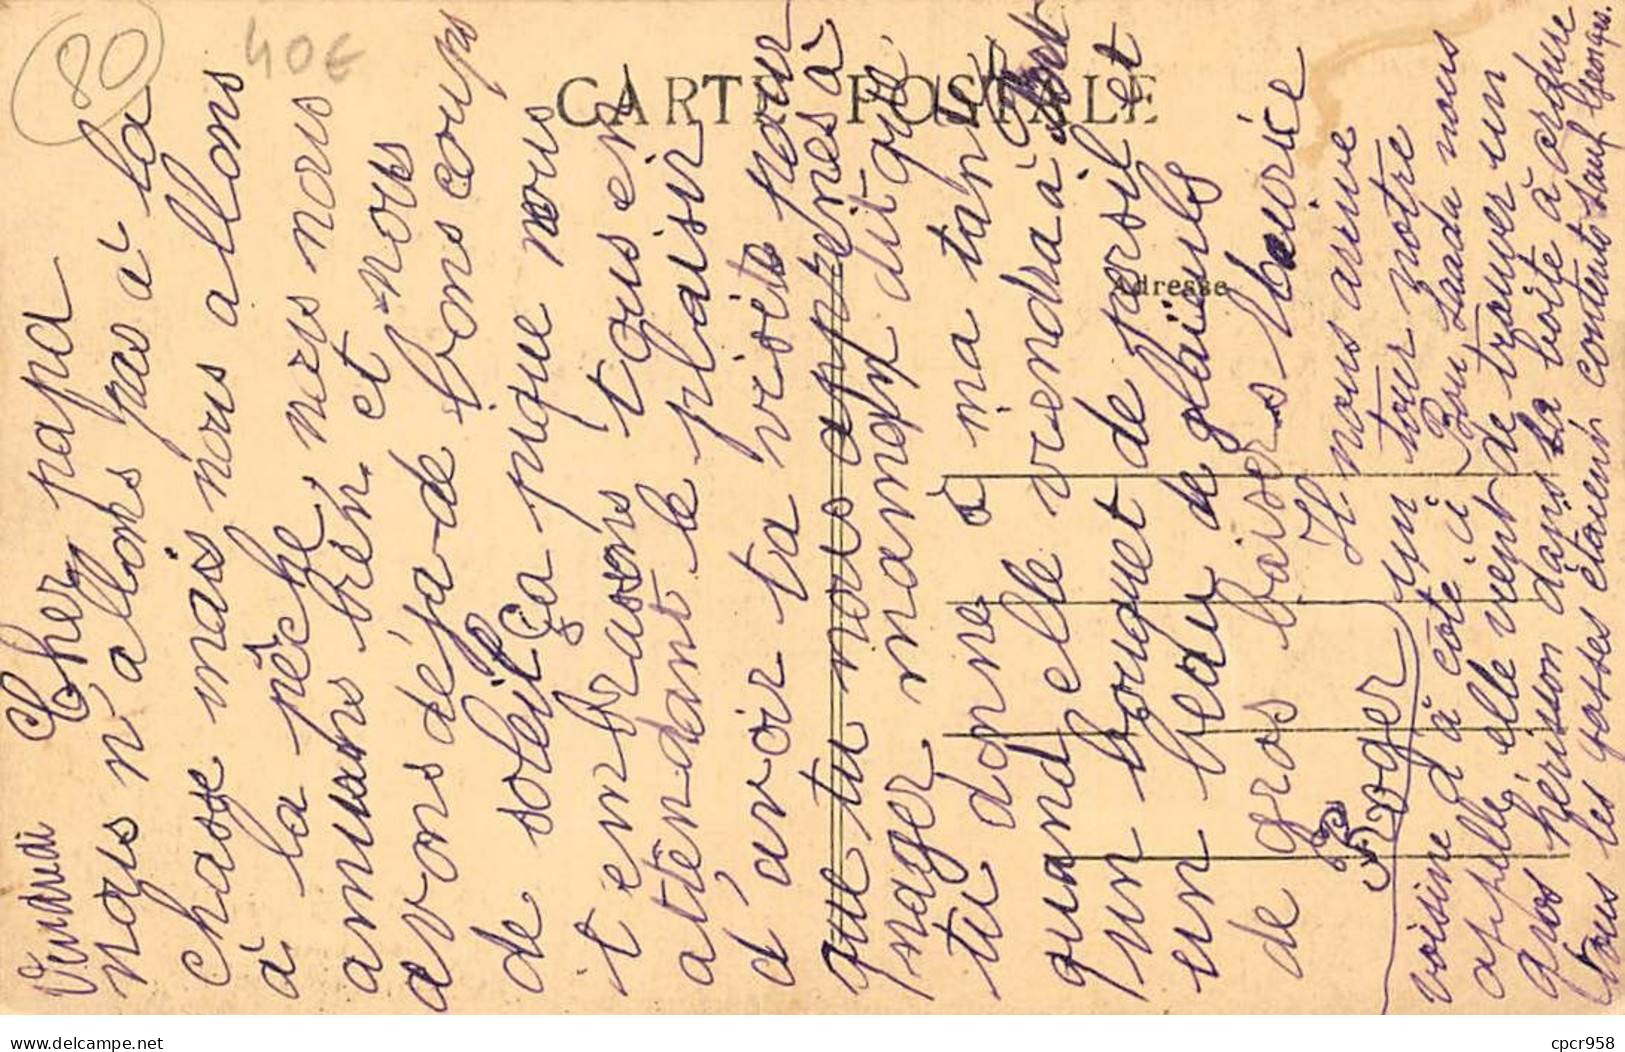 80
40€
CARTE POSTALE
Adresse
Vendredi Cher papa
nous n'allons pas à la
chasse mais nous allons
à la pêche, nous nous
amusons bien et nous
avons déjà de bons coups
de soleil ça pique nous
t'embrassons tous en
attendant le plaisir
d'avoir ta visite pour
que tu nous apprenes à
nager maman dit que
tu donne à ma tante
quand elle viendra à
un bouquet de persil et
un beau de glaïeuls
de gros baisers Maurice
Roger
Il nous arrive
un tour notre
voisine d'à coté ici
appellé elle vient de trouver un
gros hérisson dans la boîte à ordure
tous les gosses étaient contents sauf Georges.
cpcr958